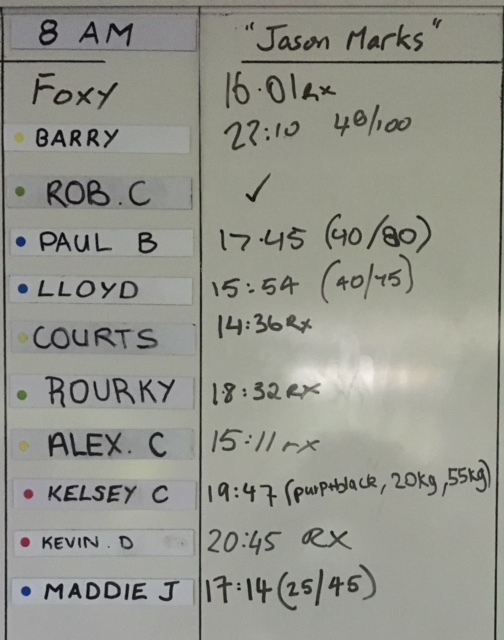 8 AM "Jason Marks"
Foxy 16.01 Rx
BARRY 22:10 40/100
ROB. C ✓
PAUL B 17.45 (40/80)
LLOYD 15:54 (40/45)
COURTS 14:36 Rx
ROURKY 18:32 RX
ALEX. C 15:11 rx
KELSEY C 19:47 (purp+black, 20kg, 55kg)
KEVIN. D 20:45 RX
MADDIE J 17:14 (25/45)